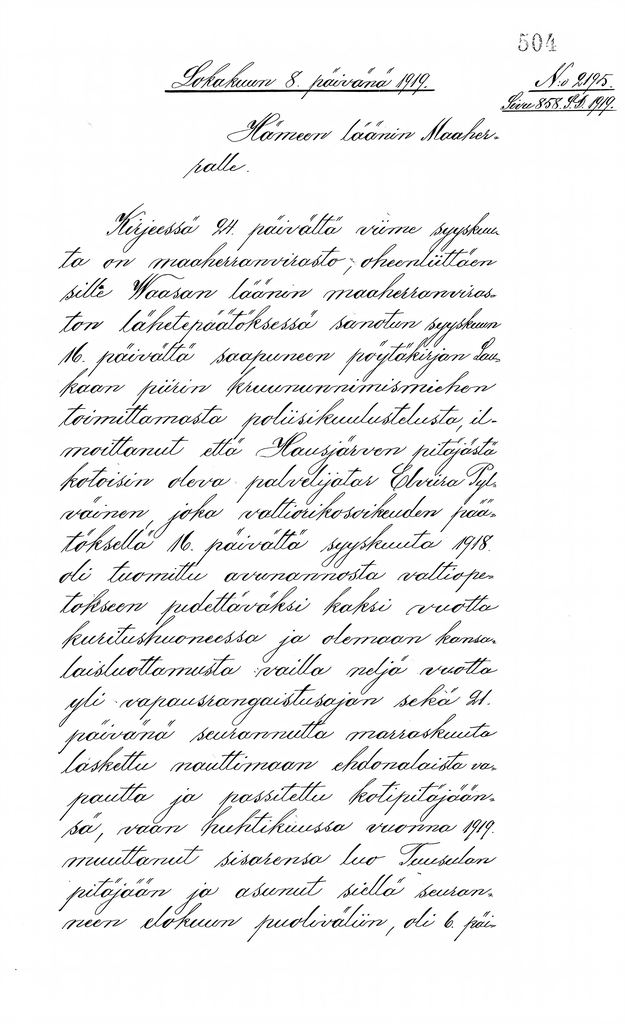 504
Lokakuun 8. päivänä 1919.
N:o 2195.
Sivu 858. S.D. 1919.
Hämeen läänin Maaher-
ralle.
Kirjeessä 24. päivältä viime syyskuu-
ta on maaherranvirasto, oheenliittäen
sille Waasan läänin maaherranviras-
ton lähetepäätöksessä sanotun syyskuun
16. päivältä saapuneen pöytäkirjan Lau-
kaan piirin kruununnimismiehen
toimittamasta poliisikuulustelusta, il-
moittanut että Hausjärven pitäjästä
kotoisin oleva palvelijatar Elviira Pyl-
väinen, joka valtiorikosoikeuden pää-
töksellä 16. päivältä syyskuuta 1918.
oli tuomittu avunannosta valtiope-
tokseen pidettäväksi kaksi vuotta
kuritushuoneessa ja olemaan kansa-
laisluottamusta vailla neljä vuotta
yli vapausrangaistusajan sekä 21.
päivänä seurannutta marraskuuta
laskettu nauttimaan ehdonalaista va-
pautta ja passitettu kotipitäjään-
sä, vaan huhtikuussa vuonna 1919.
muuttanut sisarensa luo Tuusulan
pitäjään ja asunut siellä seuran-
neen elokuun puoliväliin, oli 6. päi-